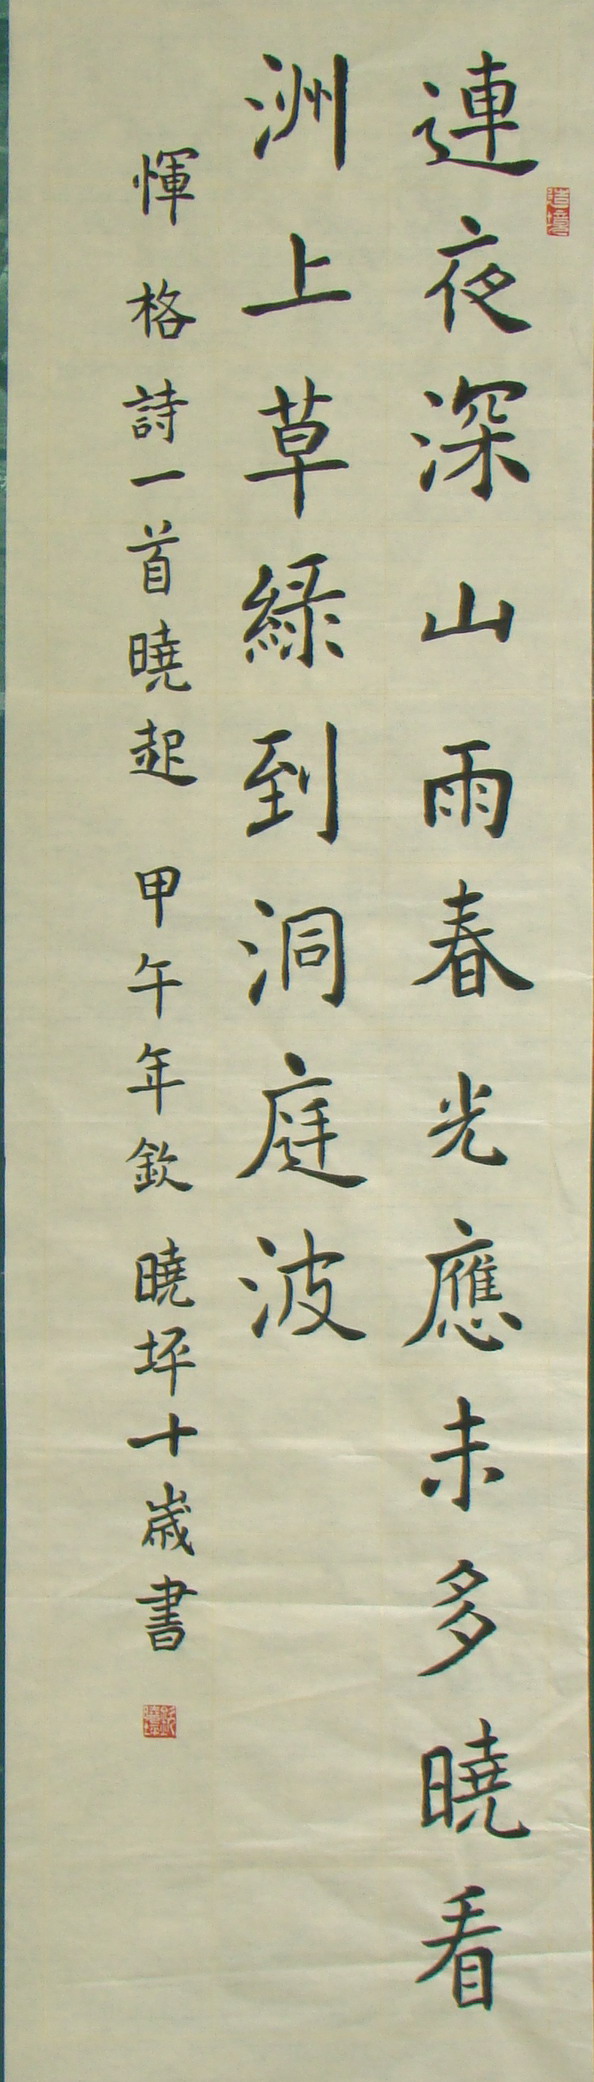 連夜深山雨春光應未多曉看
洲上草綠到洞庭波
惲格詩一首曉起 甲午年欽曉坪十歲書